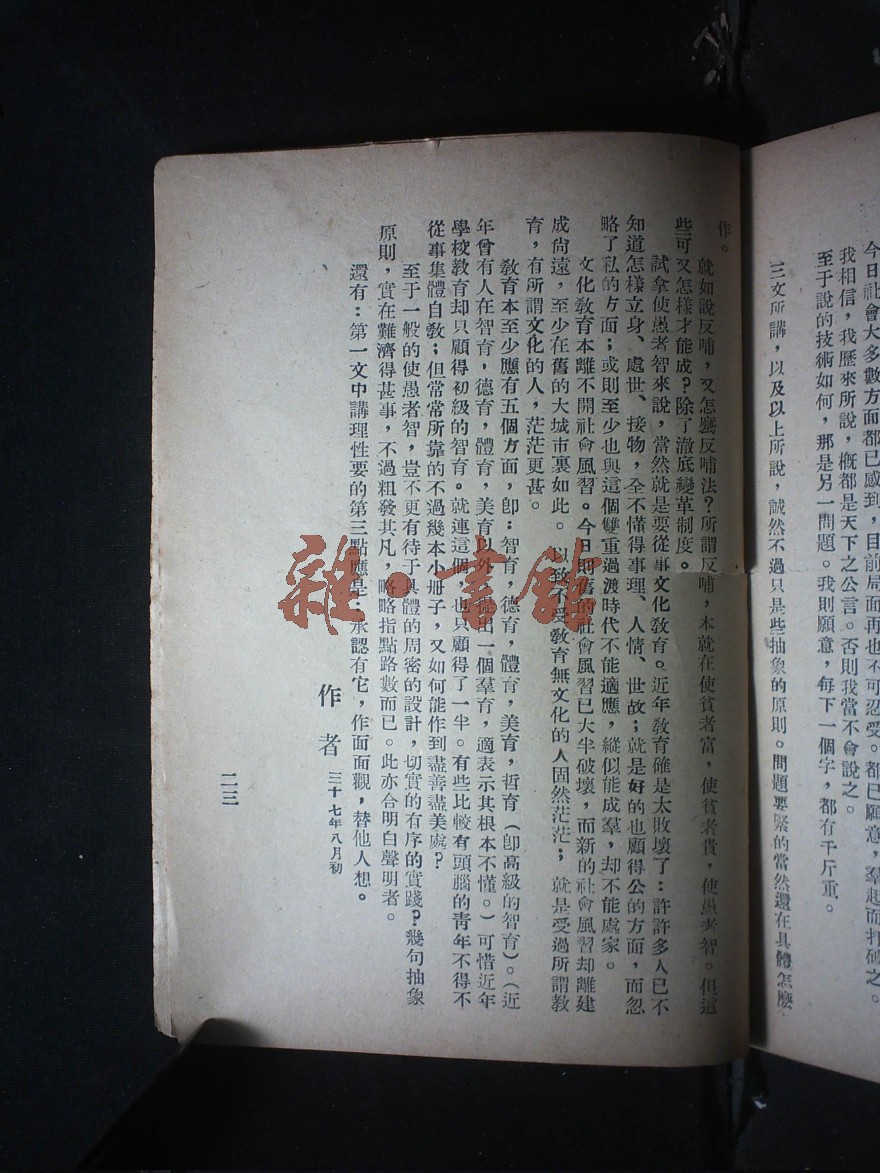 今日社會大多數方面都已感到，目前局面再也不可忍受。都已願意，羣起而打破之。
我相信，我歷來所說，概都是天下之公言。否則我當不會說之。
至于說的技術如何，那是另一問題。我則願意，每下一個字，都有千斤重。
三文所講，以及以上所說，誠然不過只是些抽象的原則。問題要緊的當然還在具體怎麼
作。
就如說反哺，又怎麼反哺法？所謂反哺，本就在使貧者富，使賤者貴，使愚者智。但這
些可又怎樣才能成？除了澈底變革制度。
試拿使愚者智來說，當然就是要從事文化教育。近年教育確是太敗壞了：許許多人已不
知道怎樣立身、處世、接物，全不懂得事理、人情、世故；就是好的也顧得公的方面，而忽
略了私的方面；或則至少也與這個雙重過渡時代不能適應，縱似能成羣，却不能處家。
文化教育本離不開社會風習。今日即舊的社會風習已大半破壞，而新的社會風習却離建
成尚遠，至少在舊的大城市裏如此。以致不受教育無文化的人固然茫茫；就是受過所謂教
育，有所謂文化的人，茫茫更甚。
教育本至少應有五個方面，即：智育，德育，體育，美育，哲育（即高級的智育）。（近
年曾有人在智育，德育，體育，美育以外提出一個羣育，適表示其根本不懂。）可惜近年
學校教育却只顧得初級的智育。就連這個也只顧得了一半。有些比較有頭腦的青年不得不
從事集體自教；但常常所靠的不過幾本小册子，又如何能作到盡善盡美處？
至于一般的使愚者智，豈不更有待于具體的周密的設計，切實的有序的實踐？幾句抽象
原則，實在難濟得甚事，不過粗發其凡，略略指點路數而已。此亦合明白聲明者。
還有：第一文中講理性要的第三點應是：承認有它，作面面觀，替他人想。
作者 三十七年八月初
二三
雜·書館